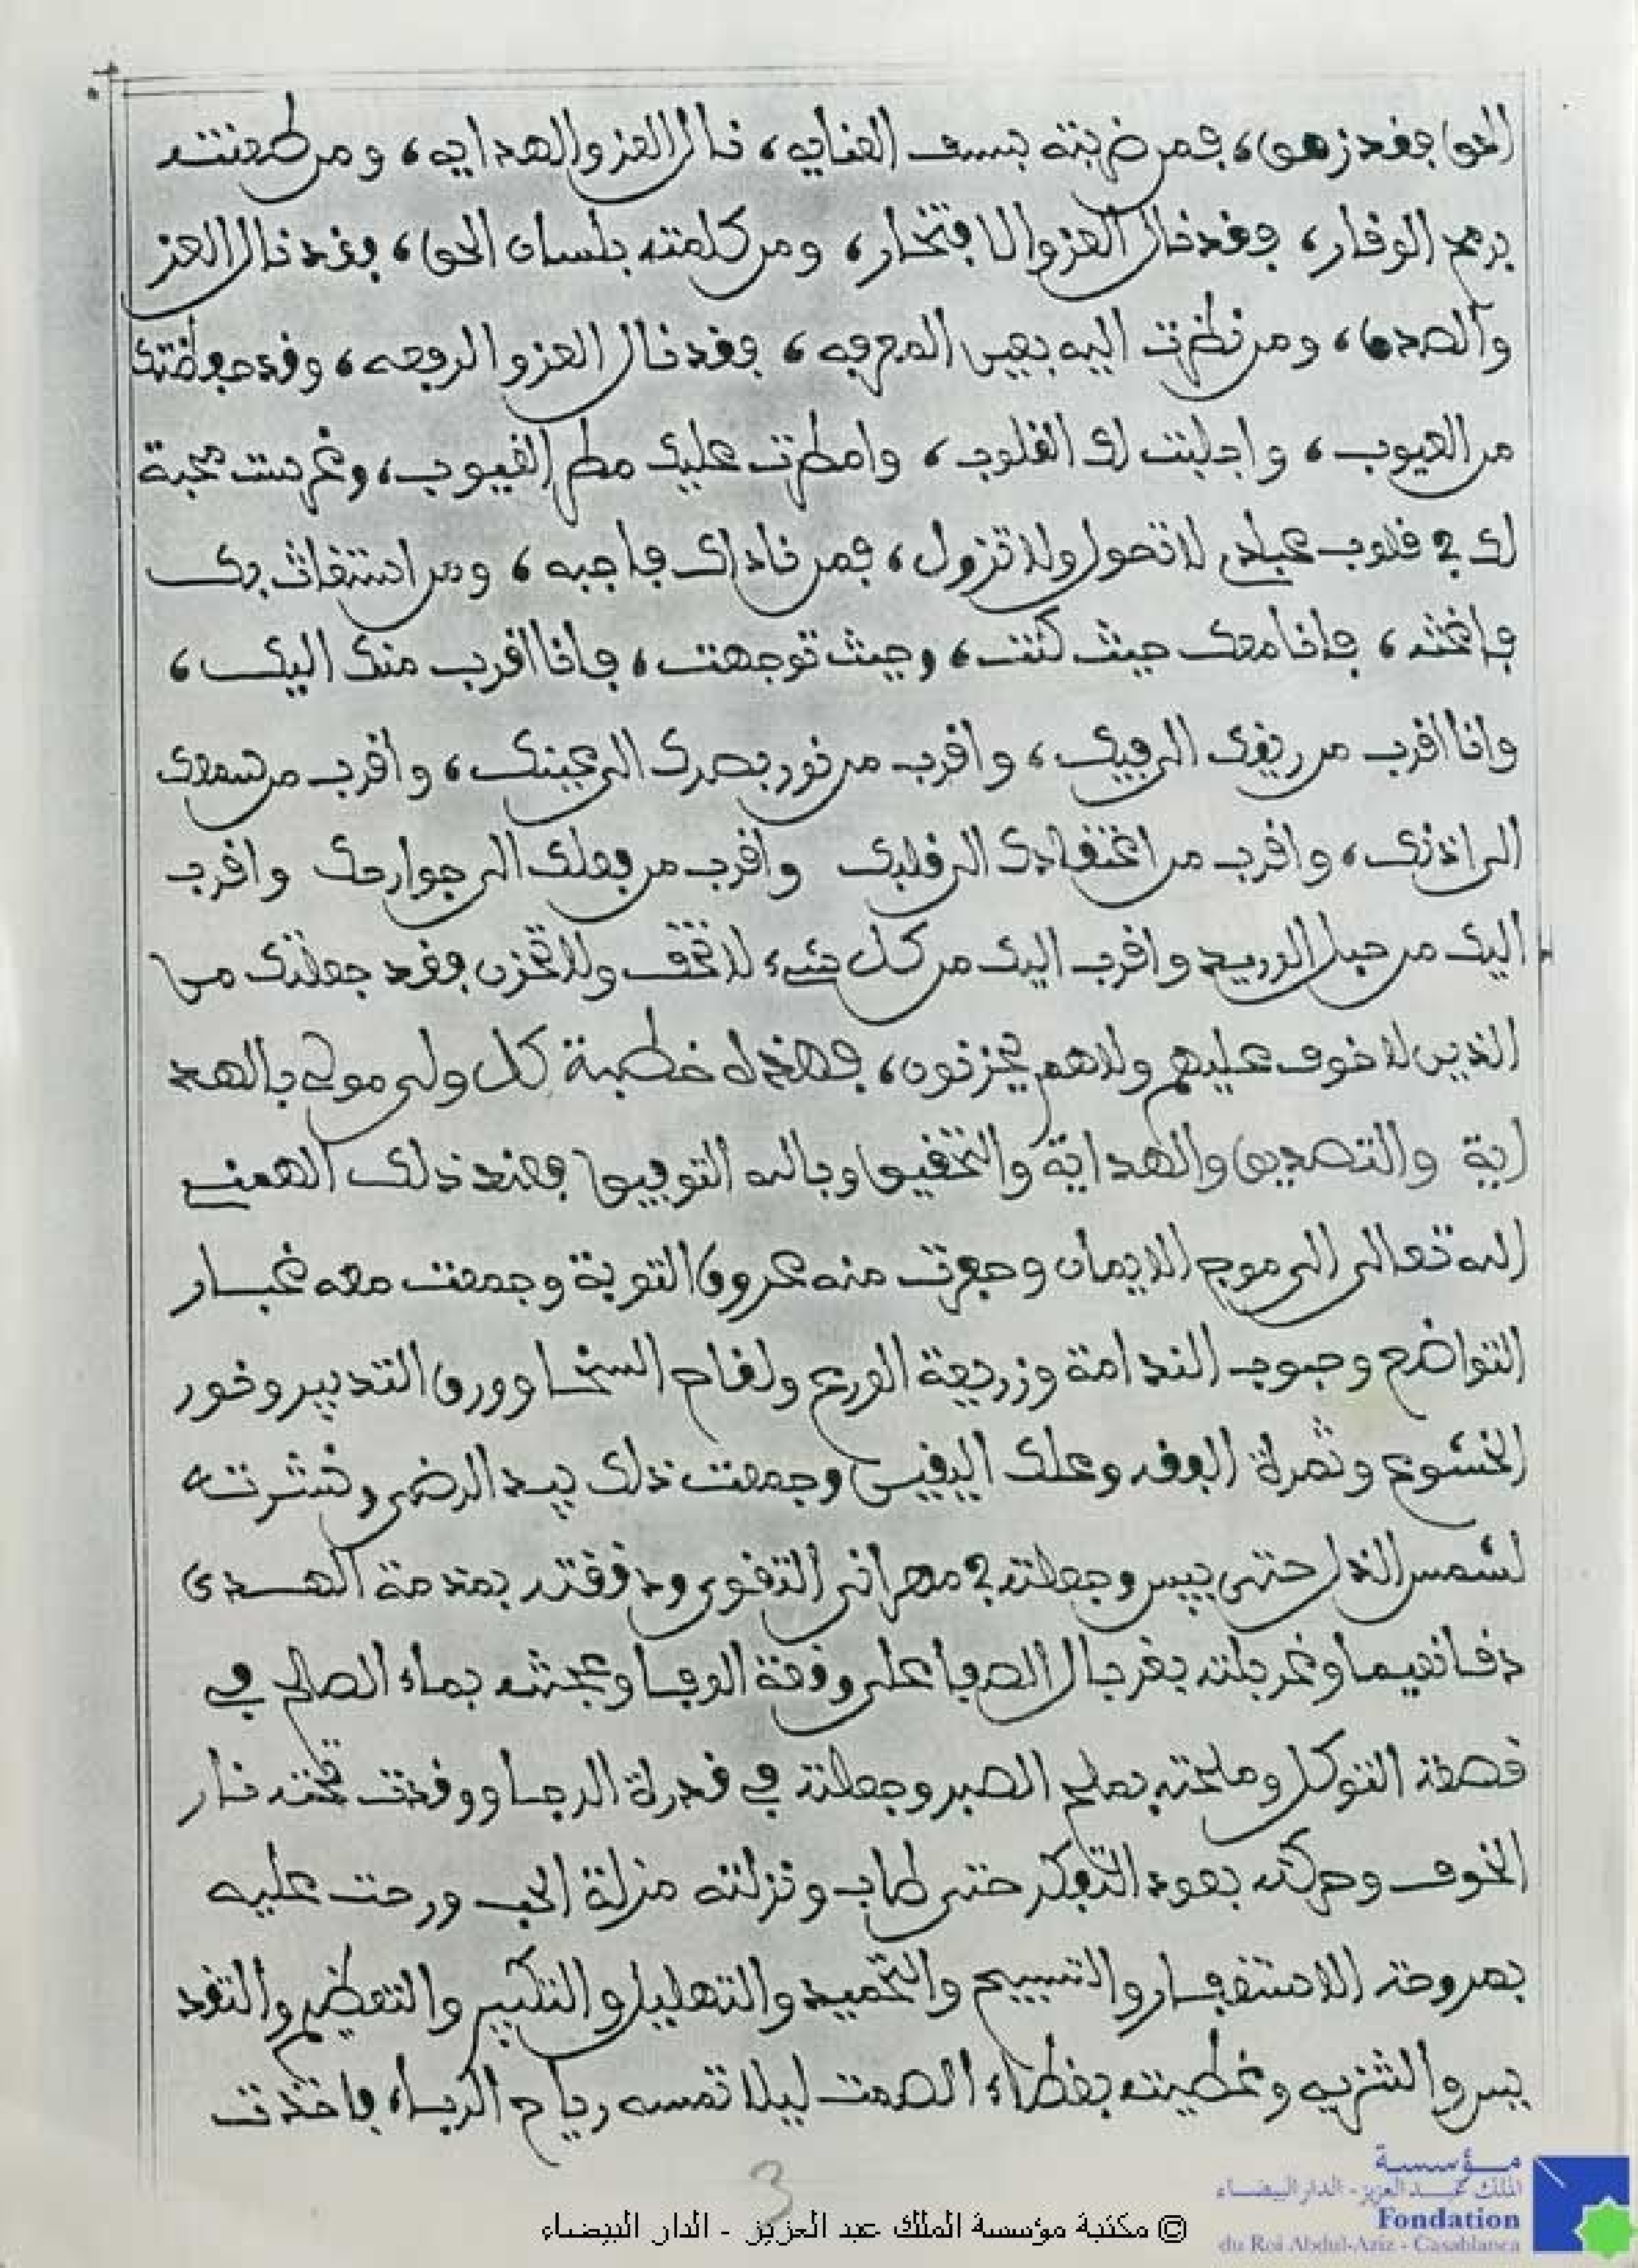 الحق فقد زهق، فمن ضربته بسيف العنايه، نال العز والهدايه، ومن طعنته
برمح الوقار، فقد نال العز والافتخار، ومن كلمته بلسان الحق، فقد نال العز
والصدق، ومن نظرت اليه بعين المعرفه، فقد نال العز والرفعه، وقد حفظتك
من العيوب، واجلبت لك القلوب، وامطرت عليك مطر الغيوب، وغرست محبة
لك في قلوب عبادي لا تحول ولا تزول، فمن ناداك فاجبه، ومن استغاث بك
فاغثه، فانا معك حيث كنت، وحيث توجهت، فانا اقرب منك اليك،
وانا اقرب من ريقك الى فيك، واقرب من نور بصرك الى عينك، واقرب من سمعك
الى اذنك، واقرب من اعتقادك الى قلبك واقرب من فعلك الى جوارحك واقرب
اليك من حبل الوريد واقرب اليك من كل شيء، لا تخف ولا تحزن فقد جعلتك من
الذين لا خوف عليهم ولا هم يحزنون، فهذه خطبة كل ولي موفى بالهد
اية والتصديق والهداية والتحقيق وبالله التوفيق فعند ذلك الهمني
الله تعالى الى موج الايمان وحفرت منه عروق التوبة وجمعت معه غبار
التواضع وحبوب الندامة وزريعة الورع ولقاح السخا وورق التدبير ونور
الخشوع وثمرة الفقه وعلك اليقين وجمعت ذلك بيد الرضى ونشرته
لشمس الذل حتى يبس وجعلته في مهراز التقوى ودققته بمدمة الهدى
دقا نعيما وغربلته بغربال الصفا على وقفة الوفا وعجنته بماء الصالح في
قصعة التوكل وملحته بملح الصبر وجعلته في قدرة الرجا ووقدت تحته نار
الخوف وحركته بعود التفكر حتى طاب ونزلته منزلة الحب وروحت عليه
بمروحة الاستغفار والتسبيح والتحميد والتهليل والتكبير والتعظيم والتقد
يس والتنزيه وغطيته بغطاء الصمت ليلا تمسه رياح الرياء فاخذت
3
© مكتبة مؤسسة الملك عبد العزيز - الدار البيضاء
مؤسسة
الملك عبد العزيز - الدار البيضاء
Fondation
du Roi Abdul-Aziz - Casablanca